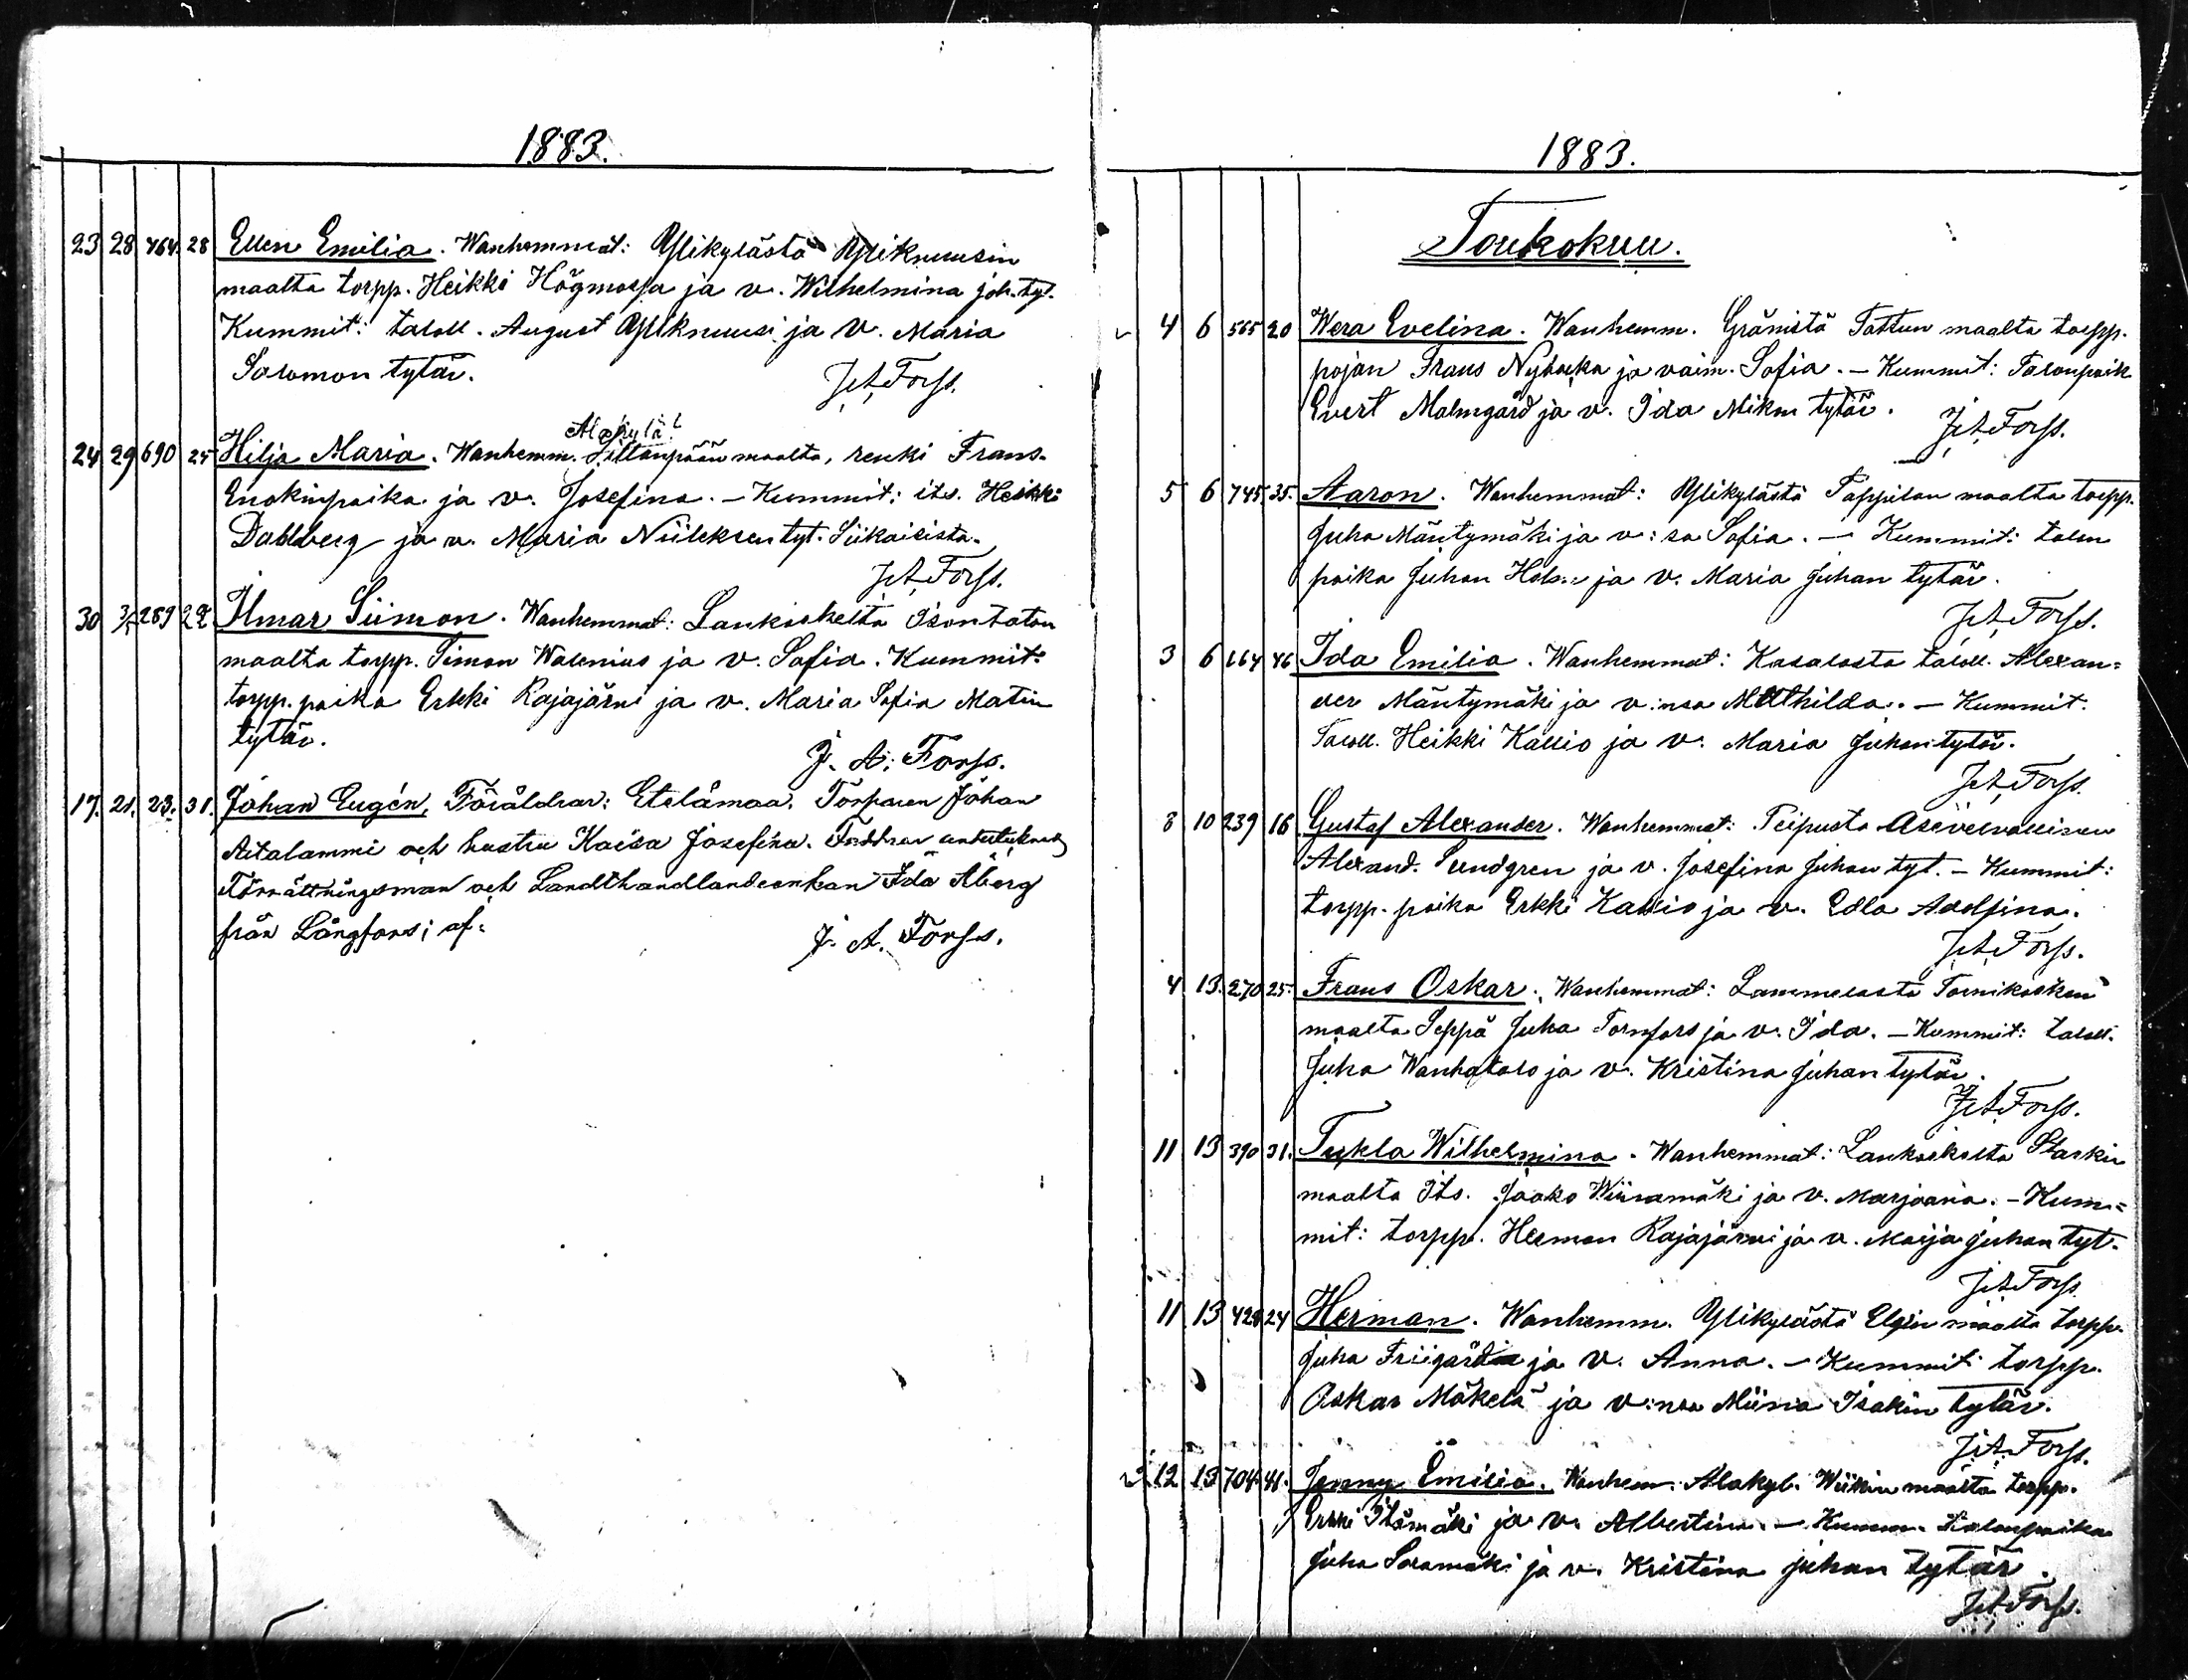 1883.
23 28 464. 28 Ellen Emilia. Wanhemmat: Ylikylästä Yliknuusin
maalta torpp. Heikki Högmossa ja v. Wilhelmina joh. tyt.
Kummit: taloll. August Yliknuusi ja v. Maria
Salomon tytär.
J. A. Forss.
Alakylä
24 29 690 25 Hilja Maria. Wanhemm. Siltanpään maalta, renki Frans
Enokinpoika ja v. Josefina. – Kummit: its. Heikki
Dahlberg ja v. Maria Niileksen tyt. Siikaisista.
J. A. Forss.
30 3/5 289 22 Ilmar Siimon. Wanhemmat: Lankoskelta Isontalon
maalta torpp. Simon Walenius ja v. Sofia. Kummit:
torpp. poika Erkki Rajajärvi ja v. Maria Sofia Matin
tytär.
J. A. Forss.
17. 21. 23. 31. Johan Eugén, Föräldrar: Etelämaa. Torparen Johan
Aitalammi och hustru Kaisa Josefina. Faddrar undertecknad
Förrättningsman och Landthandlandeenkan Ida Åberg
från Långfors; af:
J. A. Forss.
1883.
Toukokuu.
4 6 565 20 Wera Evelina. Wanhemm. Gränistä Tattun maalta torpp.
pojan Frans Nybacka ja vaim. Sofia. – Kummit: Talonpoik
Evert Malmgård ja v. Ida Mikin tytär.
J. A. Forss.
5 6 745 35. Aaron. Wanhemmat: Ylikylästä Tappilan maalta torpp.
Juha Mäntymäki ja v:sa Sofia. – Kummit: talon
poika Juhan ja v. Maria Juhan tytär.
J. A. Forss.
3 6 164 46 Ida Emilia. Wanhemmat: Kasalasta taloll. Alexan=
der Mäntymäki ja v:nsa Mathilda. – Kummit.
Taloll. Heikki Kallio ja v. Maria Juhan tytär.
J. A. Forss.
8 10 239 16 Gustaf Alexander. Wanhemmat: Peipusta Asevelvollinen
Alexand. Sundgren ja v. Josefina Juhan tyt. – Kummit:
torpp. poika Erkki Kallio ja v. Edla Adolfina.
J. A. Forss.
4 13. 270 25. Frans Oskar. Wanhemmat: Lammelasta Tornikosken
maalta Seppä Juha Tornfors ja v. Ida. – Kummit: taloll.
Juha Wanhatalo ja v. Kristina Juhan tytär.
J. A. Forss.
11 13 390 31. Tekla Wilhelmina. Wanhemmat: Lankoskelta Starkin
maalta Its. Jaako Wiiramäki ja v. Marjaana. – Kum=
mit: torpp. Herman Rajajärvi ja v. Maija Juhan tyt.
J. A. Forss.
11 13 428 24 Herman. Wanhemm. Ylikylästä Elgin maalta torpp.
Juha Friigård ja v. Anna. – Kummit torpp.
Oskar Mäkelä ja v:nsa Miina Isakin tytär.
J. A. Forss.
12 13 704 41. Jenny Emilia. Wanhem. Alakyl. Wiikin maalta torpp.
Erkki Itämäki ja v. Albertina. – Kumm. talonpoika
Juha Soramäki ja v. Kristina Juhan tytär.
J. A. Forss.